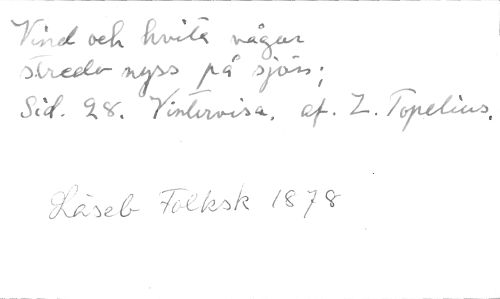 Vind och hvita vågar
stredo nyss på sjön;
Sid. 28. Vintervisa. af. Z. Topelius.
Läseb Folksk 1878